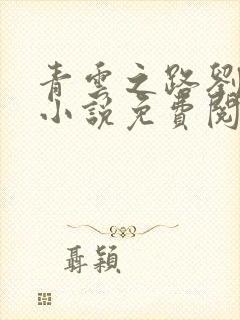 青雲之路劉
小說免費閱
聶穎